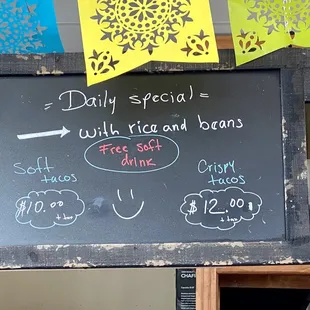 = Daily special =
→ with rice and beans
Free soft
drink
Soft
tacos
$10.00
+ tax
Crispy
tacos
$12.00
+ tax